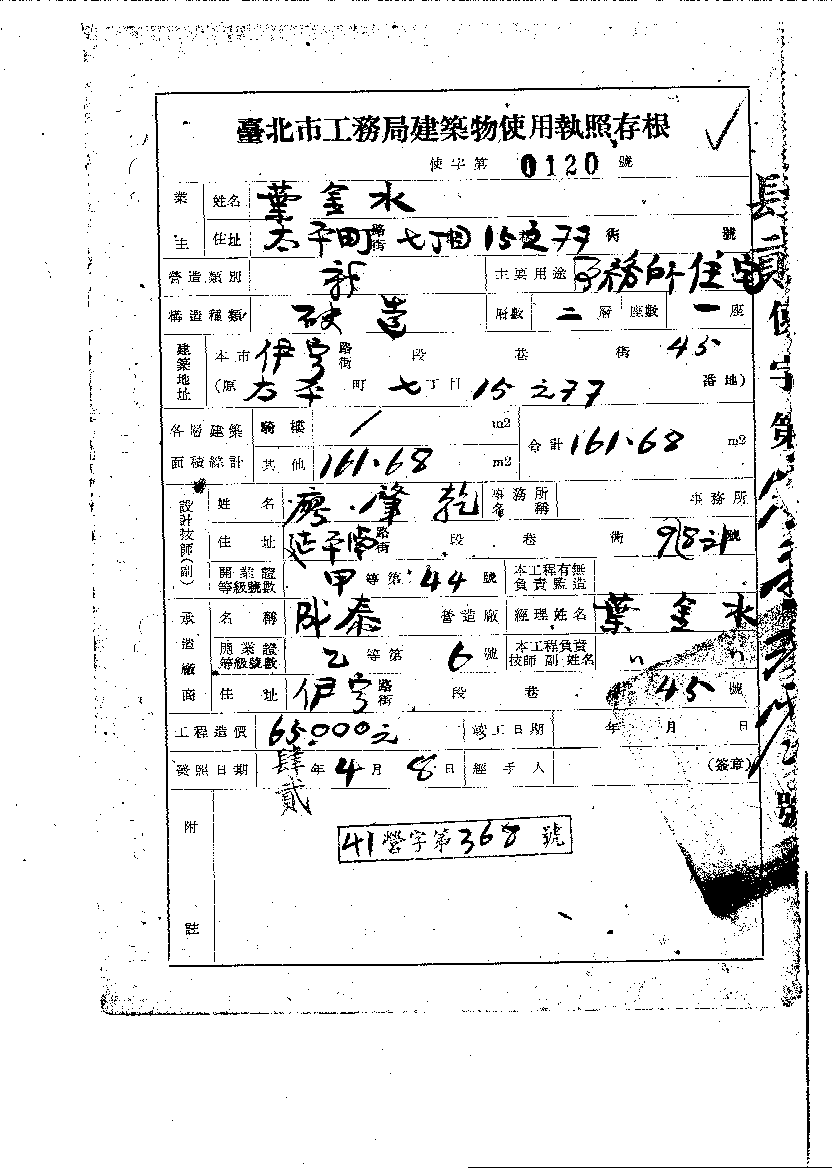 臺北市工務局建築物使用執照存根
使字第 0120 號
業主 姓名 葉金水
住址 太平町路街七丁目15之77巷街 號
營造類別 新 主要用途 事務所住宅
構造種類 磚造 層數 二層 座數 一座
建築地址 本市伊寧路街 段 巷 街 45
(原 太平町七丁目15之77 番地)
各層建築面積綜計 騎樓 / m2 合計 161.68 m2
其他 161.68 m2
設計技師(副) 姓名 廖肇乾 事務所名稱 事務所
住址 延平南路街 段 巷 街 號
開業證等級號數 甲等第44號 本工程有無負責監造
承造廠商 名稱 泰 營造廠 經理姓名 葉金水
開業證等級號數 乙等第6號 本工程負責技師副姓名 〃 〃
住址 伊寧路街 段 巷 45號
工程造價 65000元 竣工日期 年 月 日
發照日期 肆貳年4月8日 經手人 (簽章)
附註
41營字第368號
使字第
號